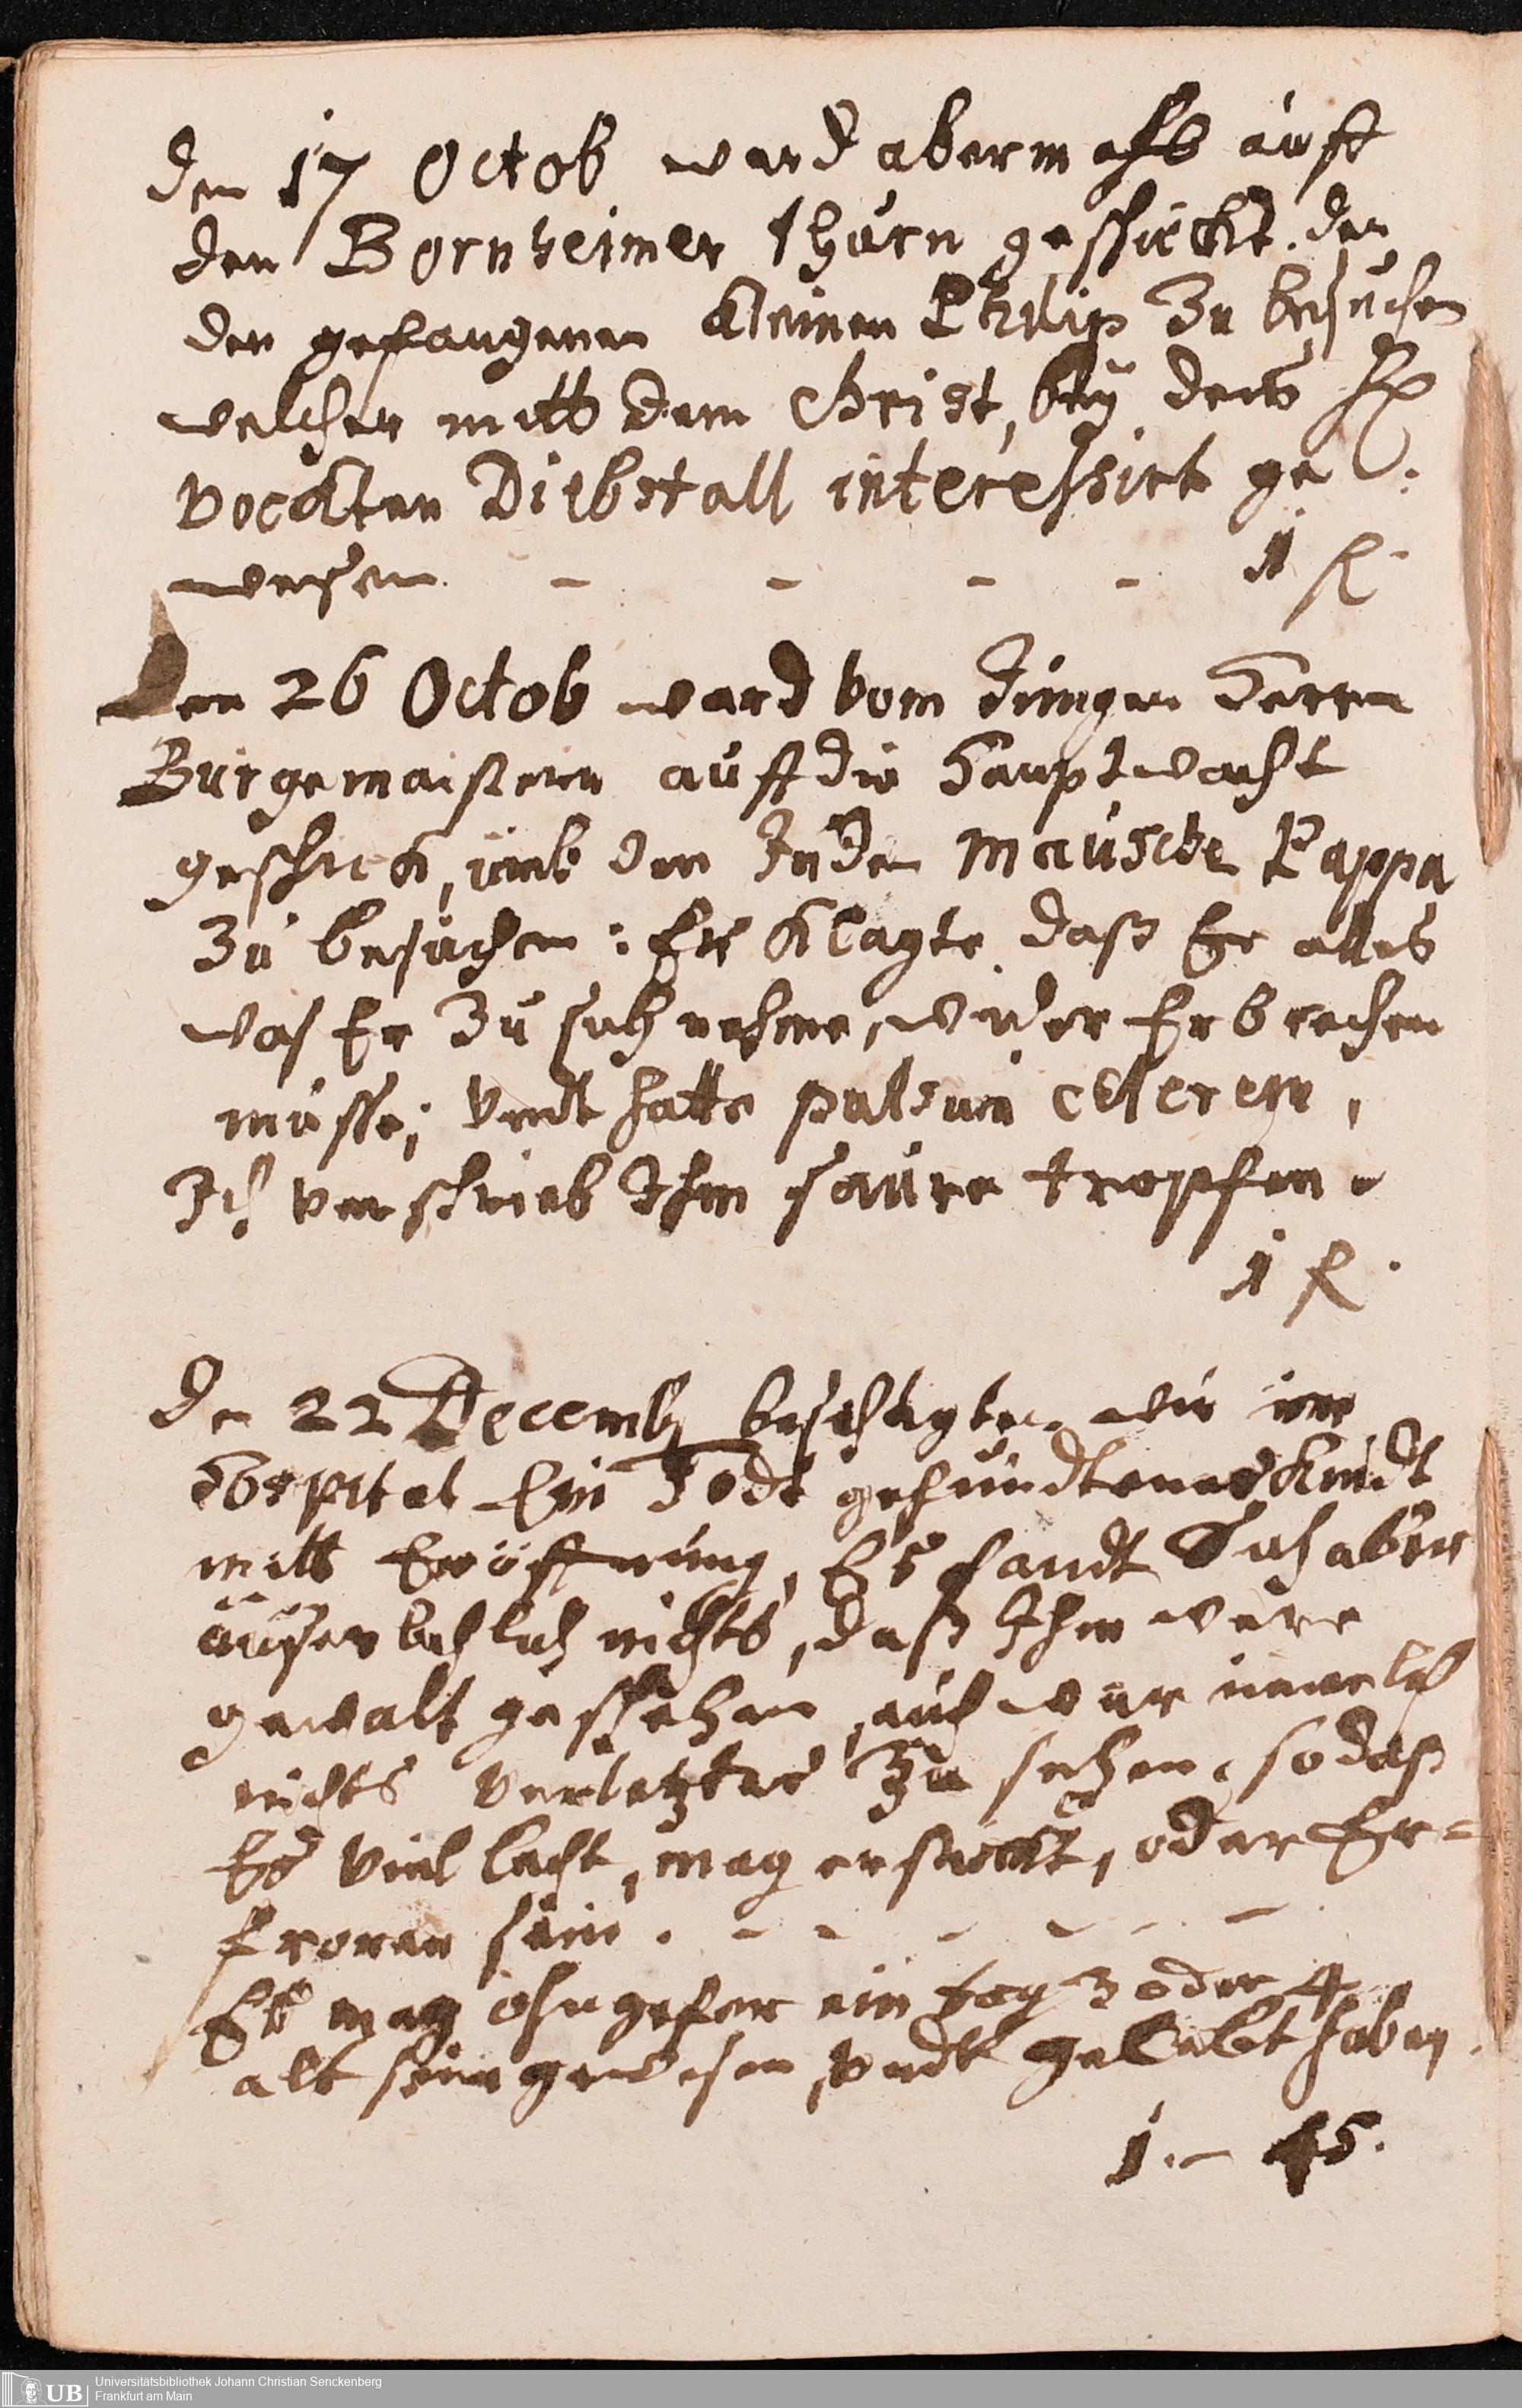 den 17 Octob ward abermahls auff
den Bornheimer thurn geschickt. den
den gefangenen kleinen Philip zu besuchen
welcher mitt dem Christ, bey des H
vockten Diebstall interessirt ge
wesen. - - - - 1 fl.
Den 26 Octob ward vom Jüngern Herrn
Bürgemaistern auff die Hauptwacht
geschick, umb den Juden Mausche Pappa
zu besuchen: Er klagte daß Er alles
was Er zu sich nehme, wider Erbrechen
müsse; vndt hatte pulsum celerem,
Ich verschrieb Ihm saure tropfen.
1 fl.
Den 22 Decemb besichtigten wir im
Hospital Ein Todt gefundtenes kindt
mitt Eröffnung, Es fandt Sich aber
äuserlich nichts, daß Ihm were
gewalt geschehen, auch war
nichts verletztes zu sehen, so daß
Es viellecht, mag erstickt, oder Er-
froren sein. - - - - - -
Es mag ohngefer ein tag 3 oder 4
alt sein gewesen, vndt gelebt haben.
1.- 45.
UB
Universitätsbibliothek Johann Christian Senckenberg
Frankfurt am Main